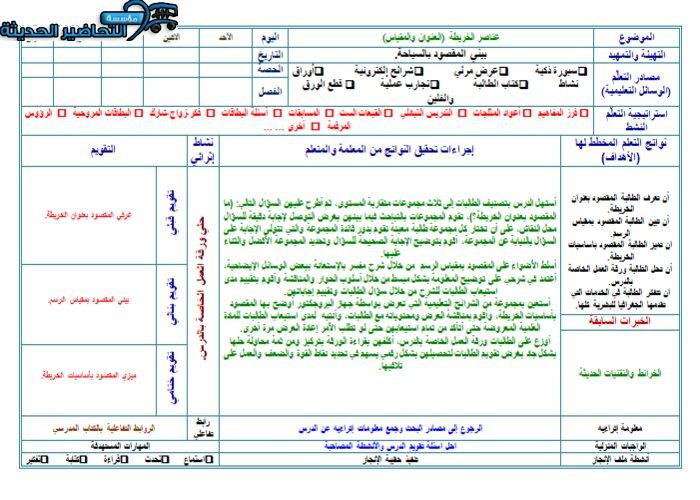 مؤسسة
التحاضير الحديثة
الموضوع
عناصر الخريطة (العنوان والمقياس)
اليوم
الأحد
الاثنين
التهيئة والتمهيد
بيني المقصود بالسياحة.
التاريخ
مصادر التعلم
(الوسائل التعليمية)
سبورة ذكية
عرض مرئي
شرائح إلكترونية
أوراق
نشاط
كتاب الطالبة
تجارب عملية
قطع الورق
والفلين
الحصة
الفصل
استراتيجية التعلم
النشط
فرز المفاهيم
أعواد المثلجات
التدريس التبادلي
القبعات الست
المسابقات
أسئلة البطاقات
فكر زواج شارك
البطاقات المروحية
الرؤوس
المرقمة
أخرى ... ...
نواتج التعلم المخطط لها
(الأهداف)
إجراءات تحقيق النواتج من المعلمة والمتعلم
نشاط
إثرائي
التقويم
أن تعرف الطالبة المقصود بعنوان
الخريطة.
أن تبين الطالبة المقصود بمقياس
الرسم.
ان تميز الطالبة المقصود باساسيات
الخريطة.
أن تحل الطالبة ورقة العمل الخاصة
بالدرس.
أن تتفكر الطالبة في الخدمات التي
تقدمها الجغرافيا للبشرية كلها.
الخبرات السابقة
الخرائط والتقنيات الحديثة
أستهل الدرس بتصنيف الطالبات إلى ثلاث مجموعات متقاربة المستوى، ثم أطرح عليهن السؤال التالي: (ما
المقصود بعنوان الخريطة؟)، تقوم المجموعات بالتباحث فيما بينهن بغرض التوصل لإجابة دقيقة للسؤال
محل النقاش، على أن تختار كل مجموعة طالبة معينة تقوم بدور قائدة المجموعة والتي تتولى الإجابة على
السؤال بالنيابة عن المجموعة. أقوم بتوضيح الإجابة الصحيحة للسؤال وتحديد المجموعة الأفضل والثناء
عليها.
أسلط الأضواء على المقصود بمقياس الرسم من خلال شرح مفسر بالإستعانة ببعض الوسائل الإيضاحية.
أعتمد في شرحي على توضيح المعلومة بشكل مبسط من خلال أسلوب الحوار والمناقشة وأقوم بتقييم مدى
إستيعاب الطالبات للشرح من خلال سؤال الطالبات وتقييم إجاباتهن.
أستعين بمجموعة من الشرائح التعليمية التي تعرض بواسطة جهاز البروجكتور أوضح بها المقصود
بأساسيات الخريطة، وأقوم بمناقشة العرض ومحتوياته مع الطالبات. وانتبه لمدى استيعاب الطالبات للمادة
العلمية المعروضة حتى أتأكد من تمام استيعابهن حتى لو تطلب الأمر إعادة العرض مرة أخرى.
أوزع على الطالبات ورقة العمل الخاصة بالدرس، أكلفهن بقراءة الورقة بتركيز ومن ثمة محاولة حلها
بشكل جاد بغرض تقويم الطالبات لتحصيلهن بشكل رقمي يسهم في تحديد نقاط القوة والضعف والعمل على
تلافيها.
حلي ورقة العمل الخاصة بالدرس.
تقويم قبلي
عرفي المقصود بعنوان الخريطة.
تقويم بنائي
بيني المقصود بمقياس الرسم.
تقويم ختامي
ميزي المقصود بأساسيات الخريطة.
معلومة إثرائيه
الرجوع إلى مصادر البحث وجمع معلومات إثراعيه عن الدرس
رابط
تفاعلي
الروابط التفاعلية بالكتاب المدرسي
الواجبات المنزلية
احل اسئلة تقويم الدرس والأنشطة المصاحبة
المهارات المستهدفة
أنشطة ملف الإنجاز
تنفيذ حقيبة الإنجاز
استماع
تحدث
قراءة
كتابة
تفكير